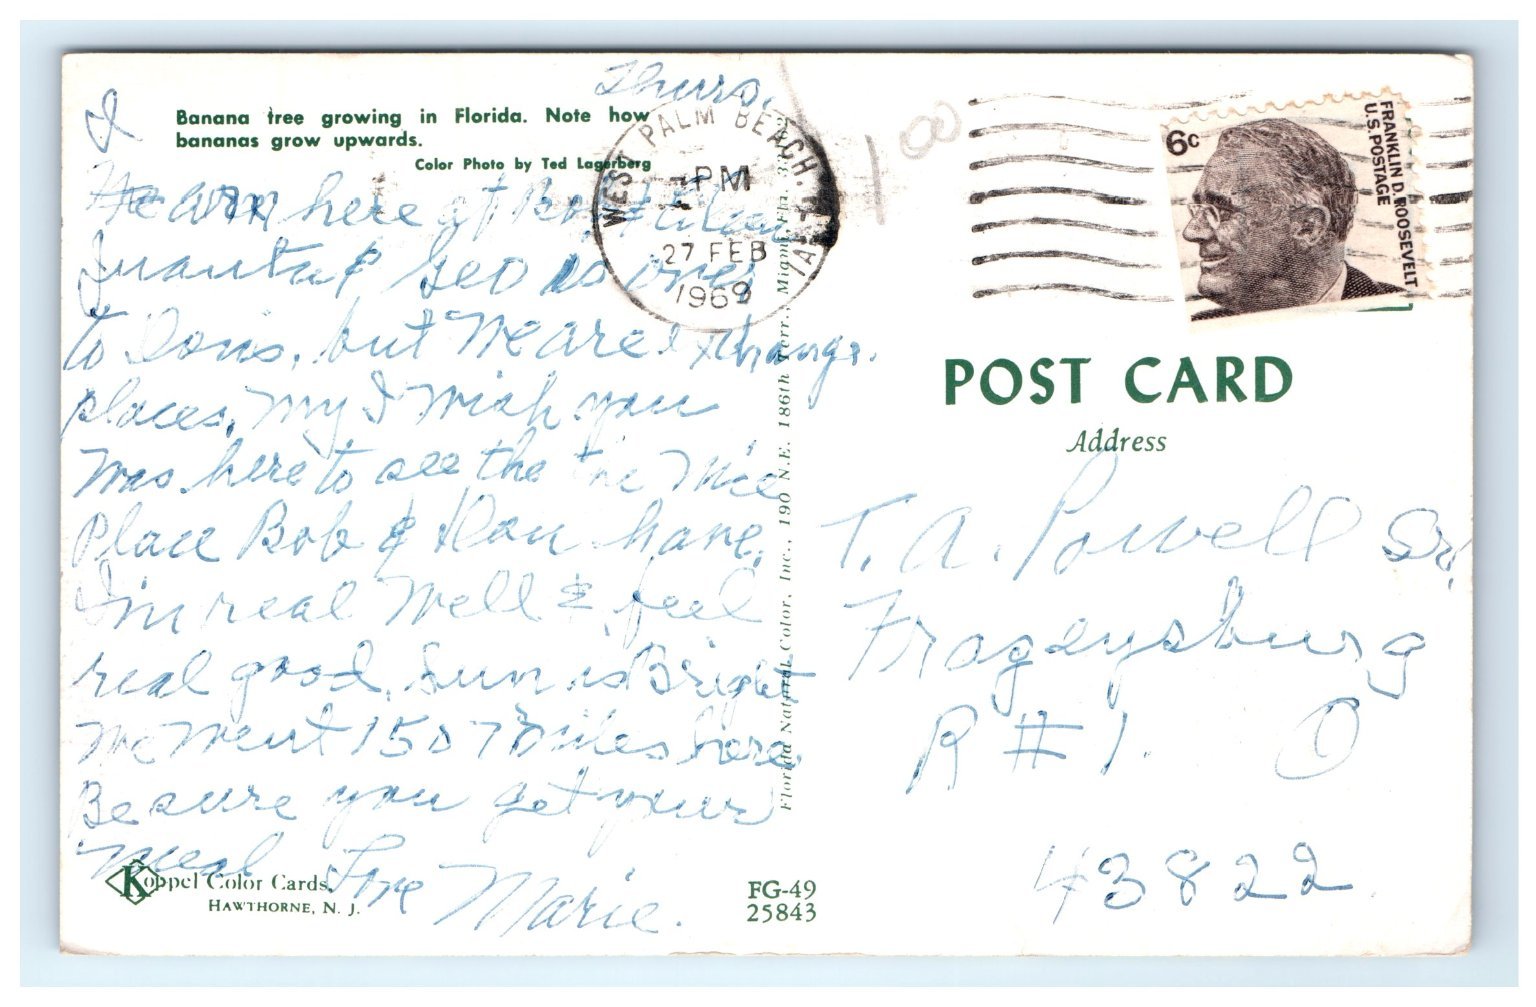 Thurs,
I
Banana tree growing in Florida. Note how
bananas grow upwards.
Color Photo by Ted Lagerberg
We are here at Bob &
Juanita & Geo is over
to Dons, but We are exchange.
places. My I Wish you
Was here to see the the Nice
Place Bob & Don have.
I'm real Well & feel
real good, Sun is Bright
We Went 1507 Miles here.
Be sure you get your
Meal Love Marie.
Koppel Color Cards
HAWTHORNE, N. J.
FG-49
25843
Florida Natural Color, Inc., 190 N.E. 186th Terr., Miami, Fla.
WEST PALM BEACH, FLA.
PM
27 FEB
1969
100
6c
FRANKLIN D. ROOSEVELT
U.S. POSTAGE
POST CARD
Address
T. A. Powell Sr.
Frazeysburg
R #1. O
43822